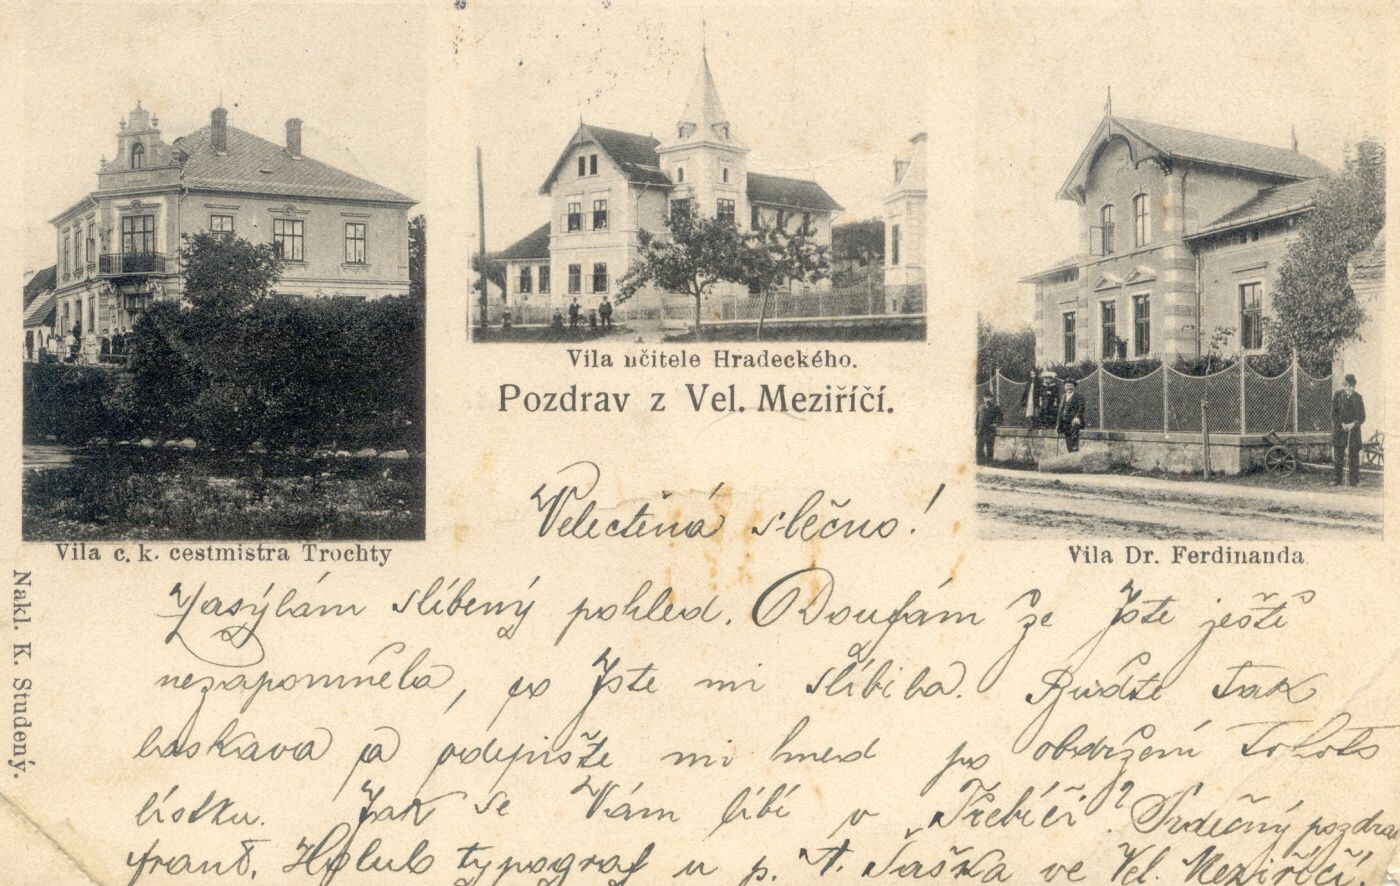 Vila učitele Hradeckého.
Pozdrav z Vel. Meziříčí.
Vila c. k. cestmistra Trochty
Vila Dr. Ferdinanda
Nakl. K. Studený.
Velectěná slečno!
Zasýlám slíbený pohled. Doufám že Jste ještě
nezapomněla, co Jste mi slíbila. Buďte tak
laskava a odepište mi hned po obdržení tohoto
lístku. Jak se Vám líbí v Třebíči? Srdečný pozdrav
Frant. Holub typograf u p. A. Šaška ve Vel. Meziříčí.